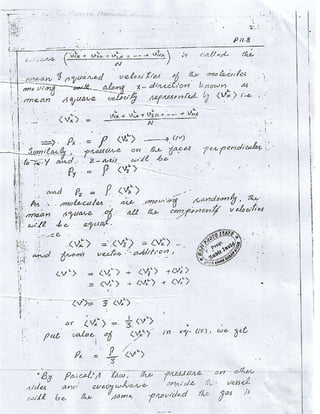 P11.8
(v²₁ₓ + v²₂ₓ + v²₃ₓ + --- + v²Nₓ / N) is called the
mean squared velocities of the molecules
moving along x-direction known as
mean square velocity represented by <Vₓ²> i.e
<Vₓ²> = v²₁ₓ + v²₂ₓ + v²₃ₓ + --- + v²Nₓ / N
⟹ Pₓ = ρ <Vₓ²> → (iv)
Similarly, pressure on the faces perpendicular
to Y and z-axis will be
Py = ρ <Vy²>
and Pz = ρ <Vz²>
As molecules are moving randomly, the
mean square of all the components velocities
will be equal.
<Vₓ²> = <Vy²> = <Vz²>
and from vector addition,
<V²> = <Vₓ²> + <Vy²> + <Vz²>
= <Vₓ²> + <Vₓ²> + <Vₓ²>
<V²> = 3 <Vₓ²>
or <Vₓ²> = 1/3 <V²>
Put value of <Vₓ²> in eq. (iv), we get
Pₓ = ρ/3 <V²>
"By Pascal's law, the pressure on other
sides and everywhere inside the vessel
will be the same provided the gas is